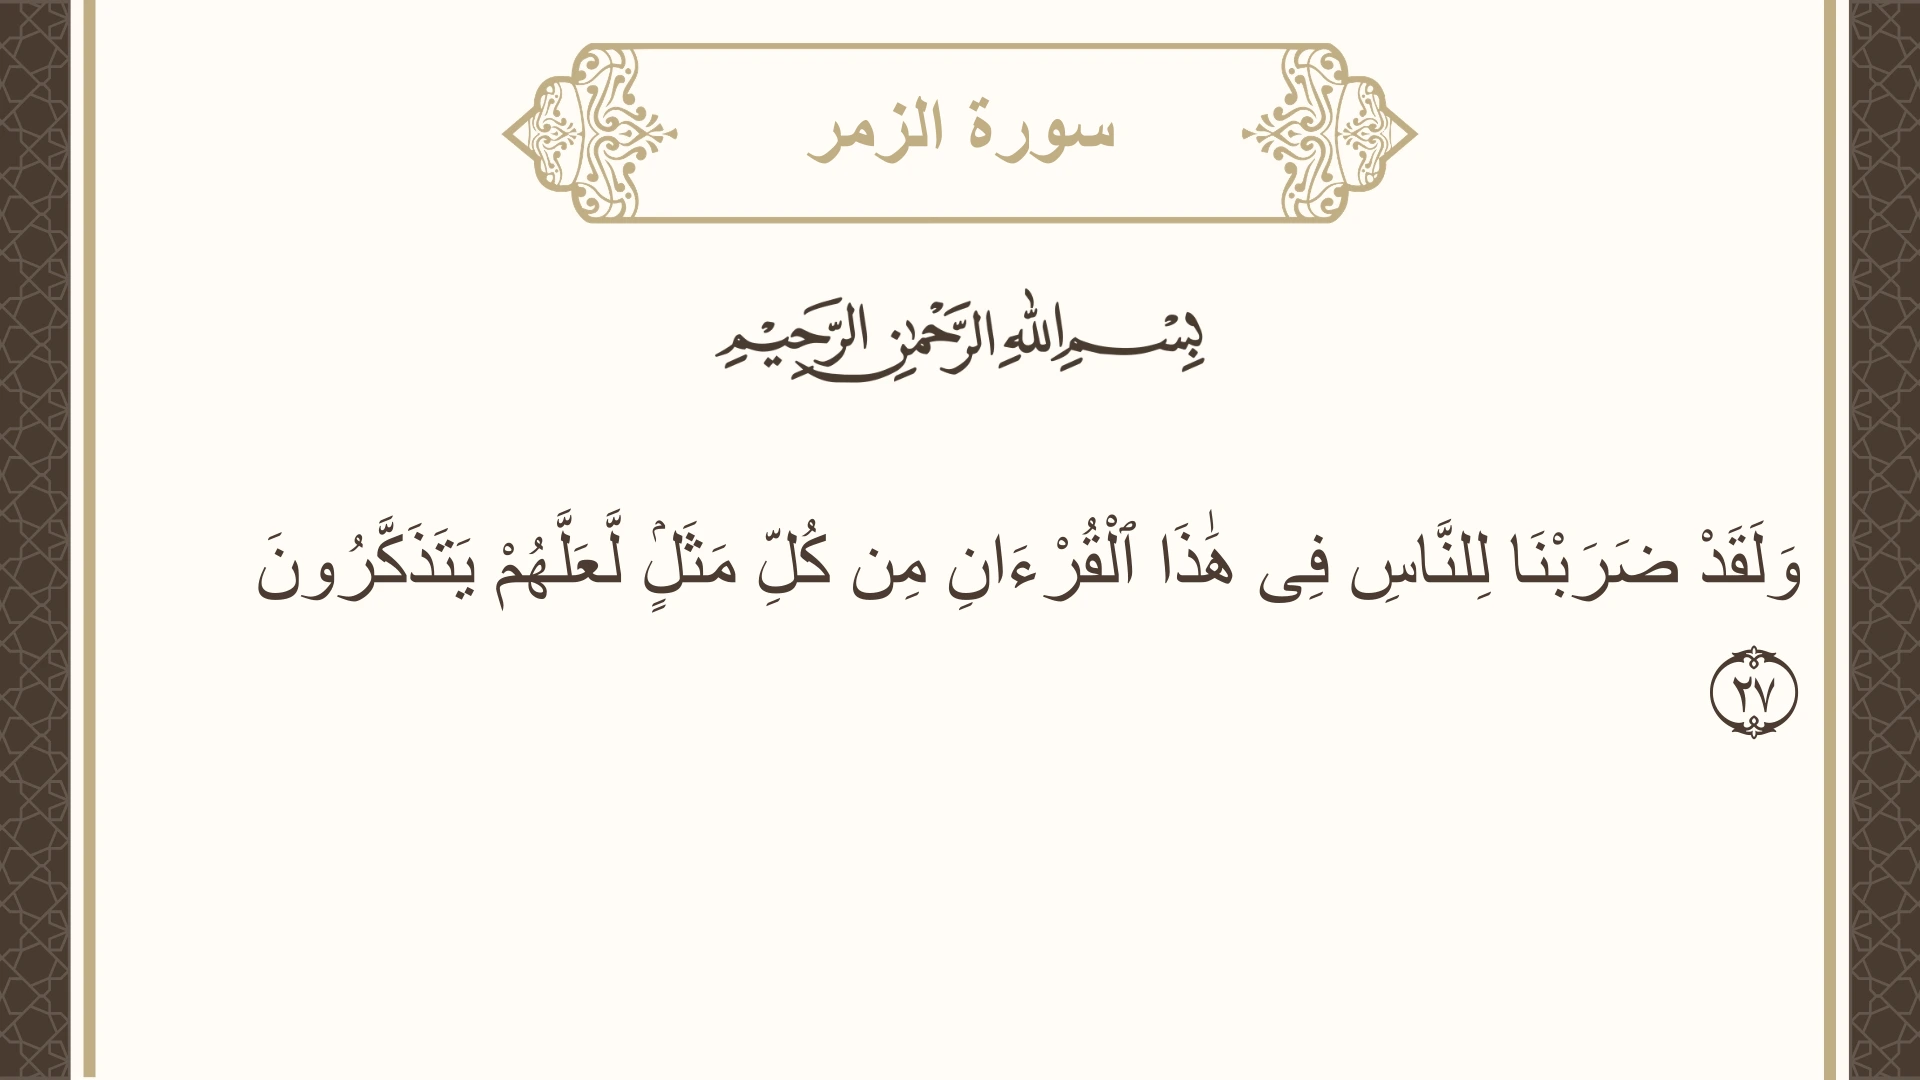 سورة الزمر
بِسْمِ اللهِ الرَّحْمٰنِ الرَّحِيْمِ
وَلَقَدْ ضَرَبْنَا لِلنَّاسِ فِى هَٰذَا ٱلْقُرْءَانِ مِن كُلِّ مَثَلٍۢ لَّعَلَّهُمْ يَتَذَكَّرُونَ
٢٧